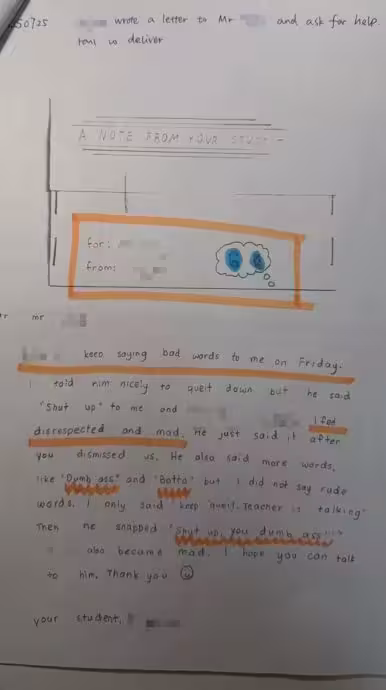 250725 wrote a letter to Mr and ask for help.
toni to deliver
A NOTE FROM YOUR STUD
for:
from:
mr
keep saying bad words to me on Friday.
I told him nicely to queit down but he said
"Shut up" to me and I feel
disrespected and mad. He just said it after
you dismissed us. He also said more words,
like "Dumb ass" and "Botta" but I did not say rude
words. I only said "keep queit. Teacher is talking"
Then he snapped "Shut up, you dumb ass"!
I also became mad. I hope you can talk
to him. Thank you
your student,